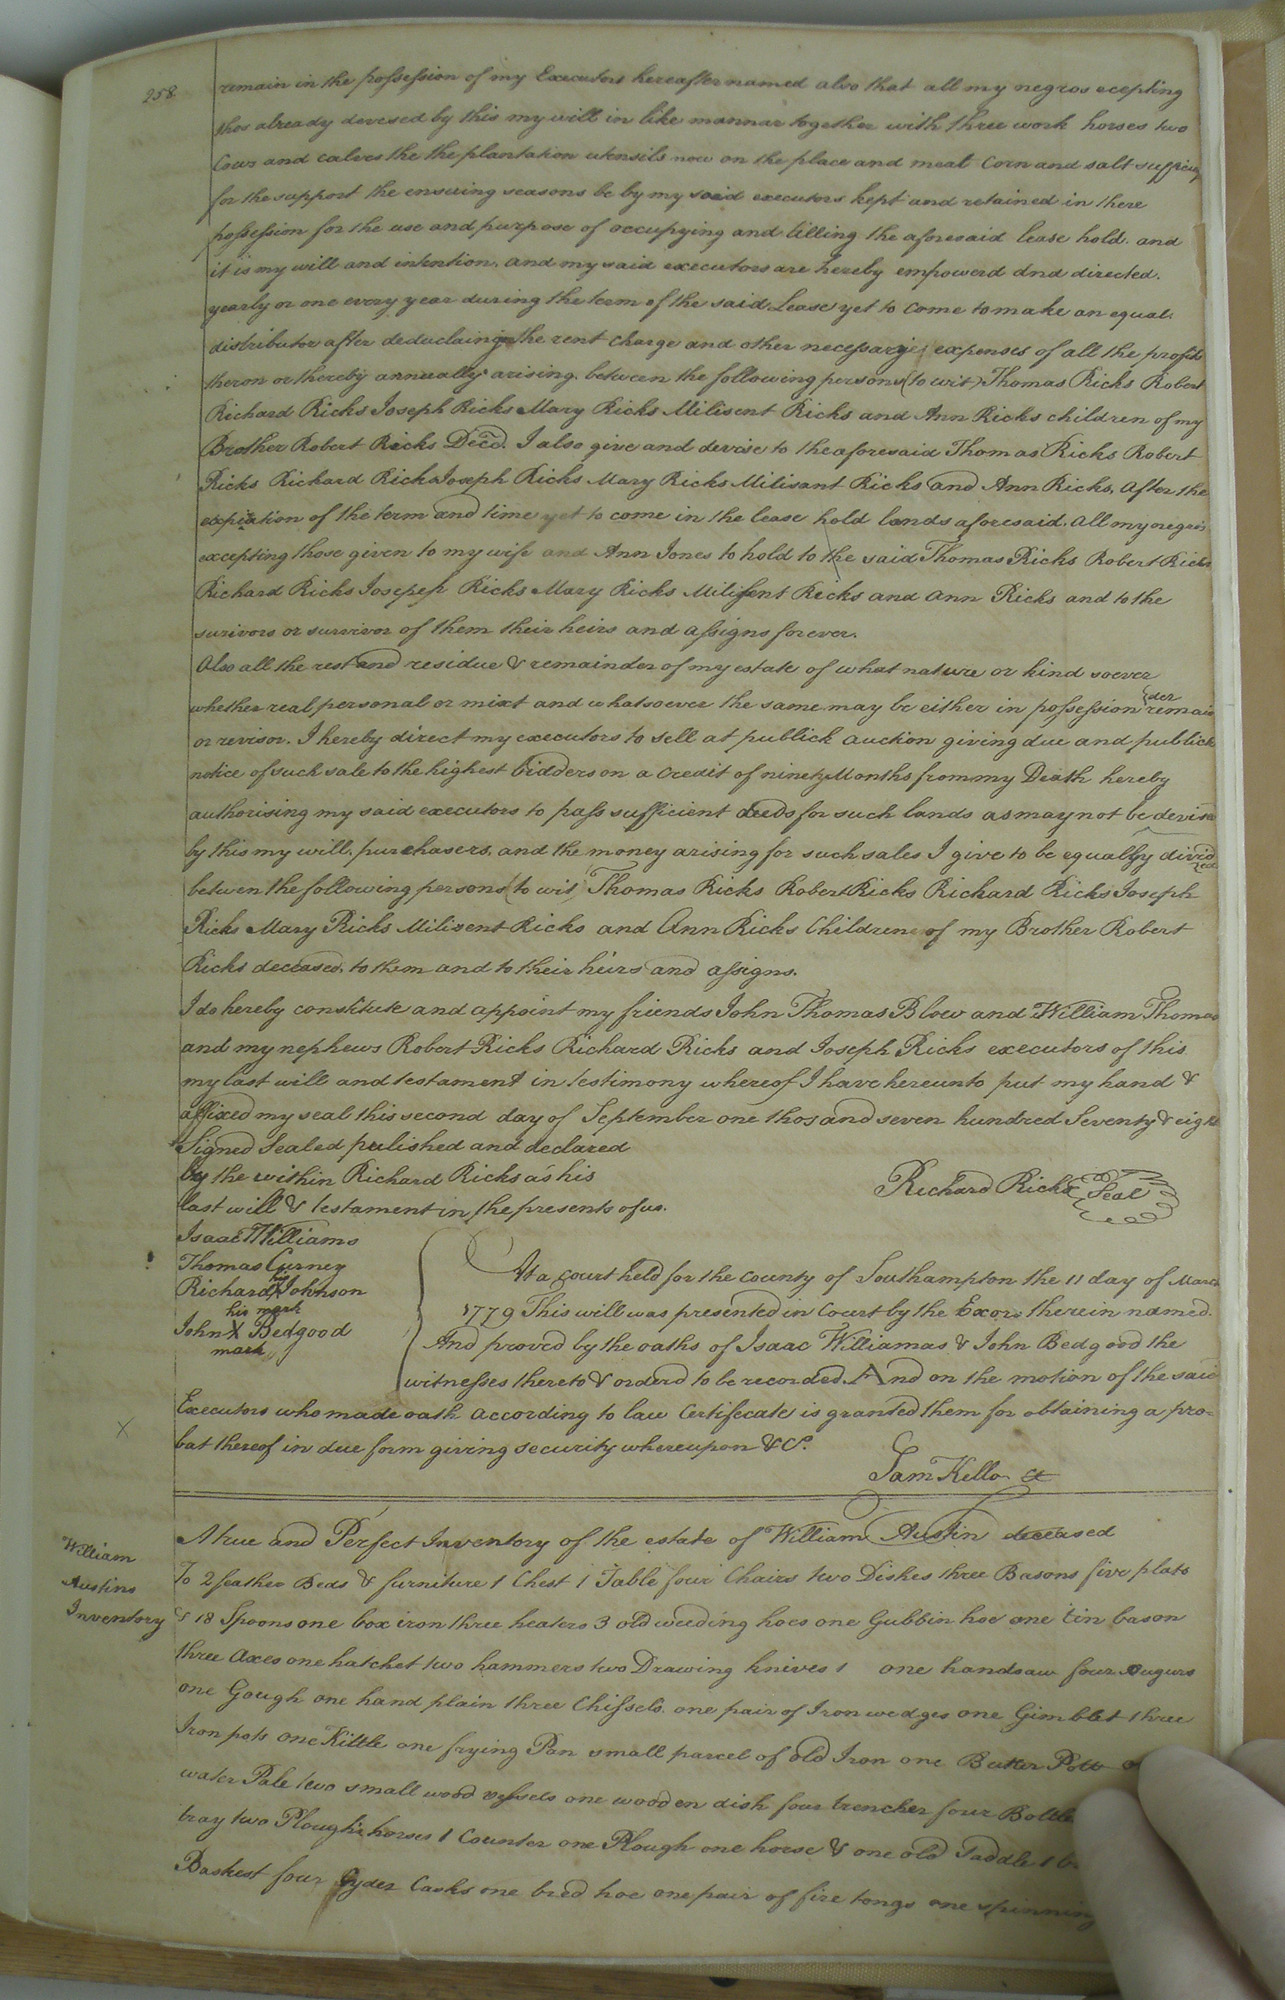 258
remain in the possession of my Executors hereafter named also that all my negros ecepting
thos already devesed by this my will in like mannar together with three work horses two
Cows and calves the the plantation utensils now on the place and meat Corn and salt
for the support the ensuing seasons be by my said executors kept and retained in there
possession for the use and purpose of occupying and tilling the aforesaid lease hold. and
it is my will and intention. and my said executors are hereby empowerd and directed.
yearly or one every year during the term of the said Lease yet to come to make an equal.
distributor after deduclaing the rent charge and other necessarye expenses of all the profits
theron or thereby annually arising. between the following persons (to wit) Thomas Ricks Robert
Richard Ricks Joseph Ricks Mary Ricks Milisent Ricks and Ann Ricks children of my
Brother Robert Ricks Decd. I also give and devise to the aforesaid Thomas Ricks Robert
Ricks Richard Ricks Joseph Ricks Mary Ricks Milisant Ricks and Ann Ricks, after the
expiation of the term and time yet to come in the lease hold lands aforesaid. all my negros
excepting those given to my wife and Ann Jones to hold to the said Thomas Ricks Robert Ricks
Richard Ricks Josepep Ricks Mary Ricks Milissent Ricks and ann Ricks and to the
surivors or survivor of them their heirs and assigns forever.
Also all the rest and residue & remainder of my estate of what nature or kind soever
whether real personal or mixt and whatsoever the same may be either in possession remain
der
or revisor. I hereby direct my executors to sell at publick auction giving due and publick
notice of such sale to the highest bidders on a credit of ninety Months from my Death hereby
authorising my said executors to pass sufficient deeds for such lands as may not be devised
by this my will, purchasers, and the money arising for such sales I give to be equally divid
ed
between the following persons (to wit) Thomas Ricks Robert Ricks Richard Ricks Joseph
Ricks Mary Ricks Milisent Ricks and Ann Ricks Children of my Brother Robert
Ricks deceased, to them and to their heirs and assigns.
I do hereby constitute and appoint my friends John Thomas Blow and William Thomas
and my nephews Robert Ricks Richard Ricks and Joseph Ricks executors of this
my last will and testament in testimony whereof I have hereunto put my hand &
affixed my seal this second day of September one thosand seven hundred Seventy & eight
Signed Sealed pulished and declared
by the within Richard Ricks as his
last will & testament in the presents of us.
Richard Ricks Seal
Isaac Williams
Thomas Gurney
Richard X Johnson
his mark
John X Bedgood
mark
At a court held for the county of Southampton the 11 day of March
1779 This will was presented in Court by the Exors therein named.
And proved by the oaths of Isaac Williamas & John Bedgood the
witnesses thereto & orderd to be recorded. And on the motion of the said
Executors who made oath according to law Certifecate is granted them for obtaining a pro-
bat thereof in due form giving security whereupon &C.
Sam Kello
William
Austins
Inventory
A true and Perfect Inventory of the estate of William Austin deceased
To 2 feather Beds & furniture 1 Chest 1 Table four Chairs two Dishes three Basons five plats
& 18 Spoons one box iron three heaters 3 old weeding hoes one Gubbin hoe one tin bason
three axes one hatchet two hammers two Drawing knives 1 one handsaw four augurs
one Gough one hand plain three Chissels. one pair of Iron wedges one Gimblet three
Iron pots one Kittle one frying Pan small parcel of old Iron one Butter Pott
water Pale two small wood vessels one wooden dish four trencher four Bottle
tray two Ploughs horses 1 Counter one Plough one horse & one old Saddle 1
Baskest four Cyder Casks one bred hoe one pair of fire tongs one spinning